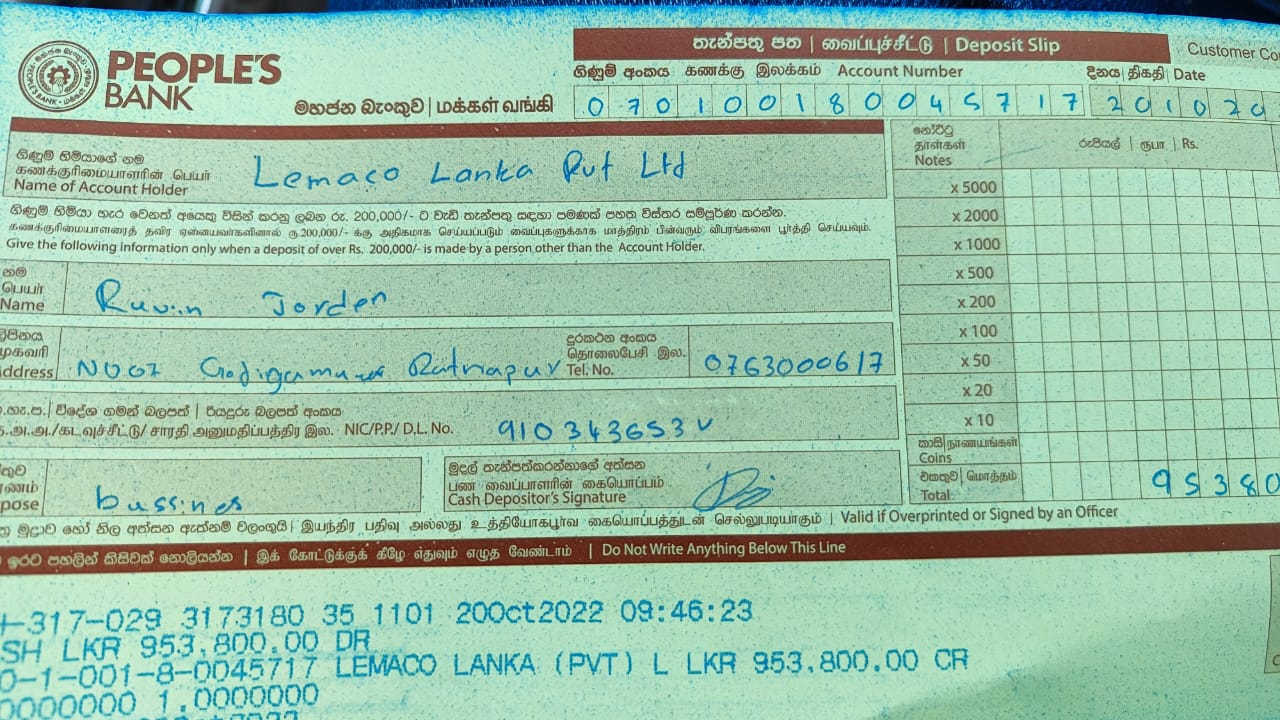 PEOPLE'S BANK
මහජන බැංකුව | மக்கள் வங்கி
තැන්පතු පත | வைப்புச்சீட்டு | Deposit Slip
Customer Co
ගිණුම් අංකය கணக்கு இலக்கம் Account Number
දිනය | திகதி | Date
070100180045717
20102
ගිණුම් හිමියාගේ නම
கணக்குரிமையாளரின் பெயர்
Name of Account Holder
Lemaco Lanka Pvt Ltd
ගිණුම් හිමියා හැර වෙනත් අයෙකු විසින් කරනු ලබන රු. 200,000/- ට වැඩි තැන්පතු සඳහා පමණක් පහත විස්තර සම්පූර්ණ කරන්න.
கணக்குரிமையாளரைத் தவிர ஏனையவர்களினால் ரூ.200,000/- க்கு அதிகமாக செய்யப்படும் வைப்புகளுக்காக மாத்திரம் பின்வரும் விபரங்களை பூர்த்தி செய்யவும்.
Give the following information only when a deposit of over Rs. 200,000/- is made by a person other than the Account Holder.
නම
பெயர்
Name
Ruvin Jorden
Address
Ratnapur
දුරකථන අංකය
தொலைபேசி இல.
Tel. No.
0763000617
විදේශ ගමන් බලපත් | රියදුරු බලපත් අංකය
அ.அ./கடவுச்சீட்டு/ சாரதி அனுமதிப்பத்திர இல. NIC/P.P./ D.L. No.
910343653V
pose
bussines
මුදල් තැන්පත්කරන්නාගේ අත්සන
பண வைப்பாளரின் கையொப்பம்
Cash Depositor's Signature
නෝට්ටු
தாள்கள்
Notes
රුපියල් | ரூபா | Rs.
x 5000
x 2000
x 1000
x 500
x 200
x 100
x 50
x 20
x 10
කාසි | நாணயங்கள்
Coins
එකතුව | மொத்தம்
Total
95380
මුද්‍රාව හෝ නිල අත්සන ඇත්නම් වලංගුයි | இயந்திர பதிவு அல்லது உத்தியோகபூர்வ கையொப்பத்துடன் செல்லுபடியாகும் | Valid if Overprinted or Signed by an Officer
ඉරට පහලින් කිසිවක් නොලියන්න | இக் கோட்டுக்குக் கீழே எதுவும் எழுத வேண்டாம் | Do Not Write Anything Below This Line
-317-029 3173180 35 1101 20Oct2022 09:46:23
SH LKR 953,800.00 DR
0-1-001-8-0045717 LEMACO LANKA (PVT) L LKR 953,800.00 CR
0000000 1.0000000